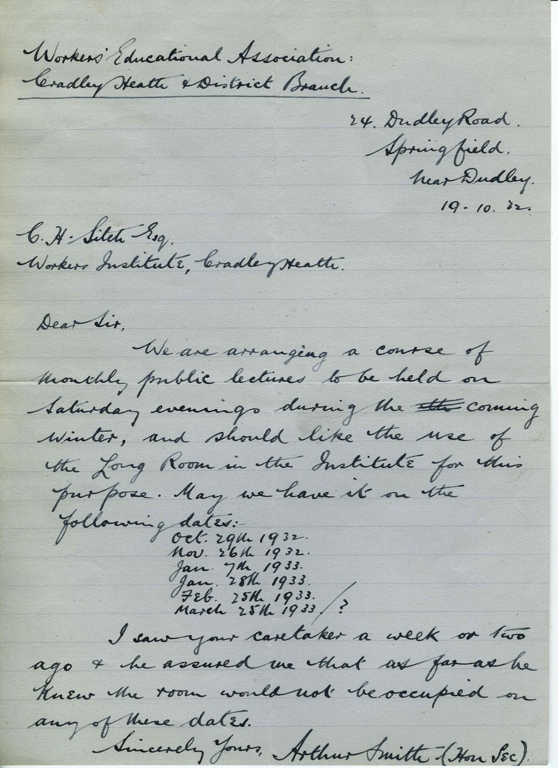 Workers' Educational Association:
Cradley Heath & District Branch.
24. Dudley Road.
Springfield.
Near Dudley.
19-10.32.
C. H. Sitch Esq.
Workers Institute, Cradley Heath.
Dear Sir,
We are arranging a course of
monthly public lectures to be held on
Saturday evenings during the coming
winter, and should like the use of
the Long Room in the Institute for this
purpose. May we have it on the
following dates:-
Oct. 29th 1932.
Nov. 26th 1932.
Jan. 7th 1933.
Jan. 28th 1933.
Feb. 25th 1933.
March 25th 1933/?
I saw your caretaker a week or two
ago & he assured me that as far as he
knew the room would not be occupied on
any of these dates.
Sincerely Yours, Arthur Smith-(Hon Sec).